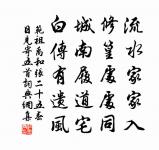 流水家家入
修篁處處同
城南履道宅
白傅有遺風
范祖禹和張二十五春
日見寄五首詞典網集